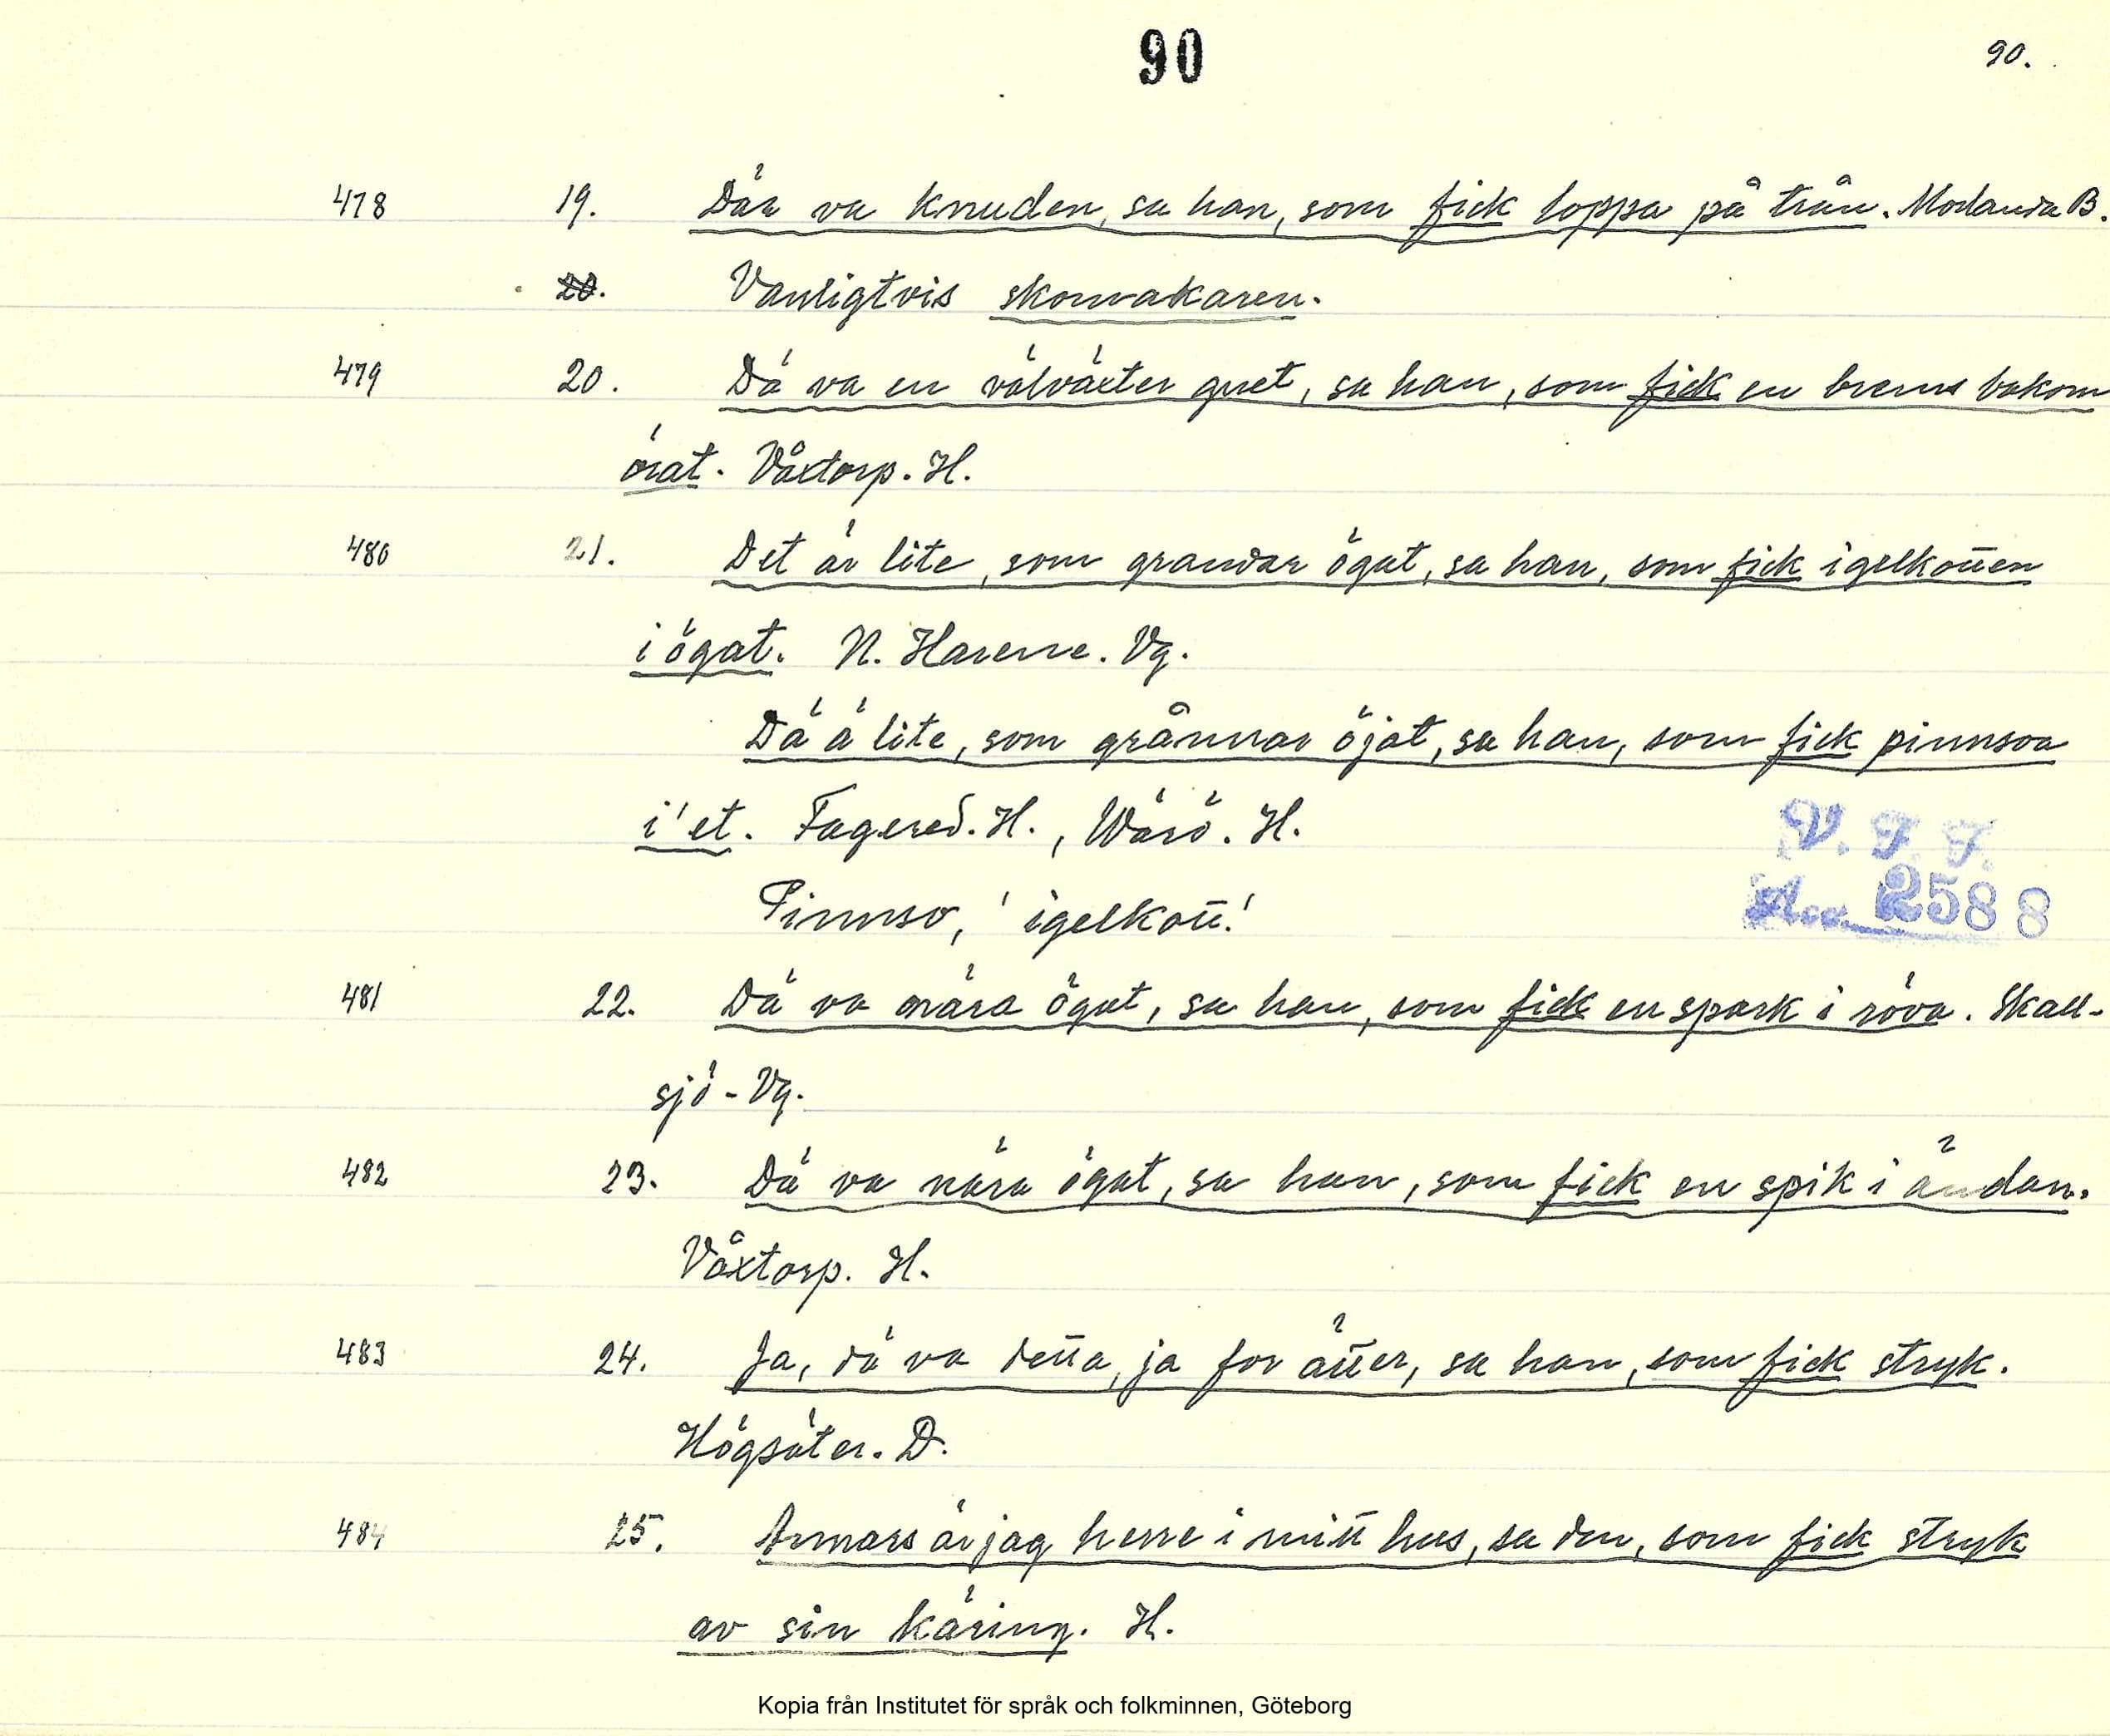 90
90.
478 19. Där va knuden, sa han, som fick loppa på trån. Morlanda B.
20. Vanligtvis skomakaren.
479 20. Dä va en välväxter gnet, sa han, som fick en broms bakom
örat. Våxtorp. H.
480 21. Det är lite, som grandar ögat, sa han, som fick igelkotten
i ögat. N. Härene. Vg.
Dä ä lite, som grånnar öjat, sa han, som fick pinnsoa
i'et. Fagered. H., Värö. H.
V. F. F.
Pinnso, 'igelkott'.
Acc. 2588
481 22. Dä va nära ögat, sa han, som fick en spark i röva. Skall-
sjö - Vg.
482 23. Dä va nära ögat, sa han, som fick en spik i ändan.
Våxtorp. H.
483 24. Ja, dä va detta, ja for ätter, sa han, som fick stryk.
Högsäter. D.
484 25. Annars är jag herre i mitt hus, sa den, som fick stryk
av sin käring. H.
Kopia från Institutet för språk och folkminnen, Göteborg